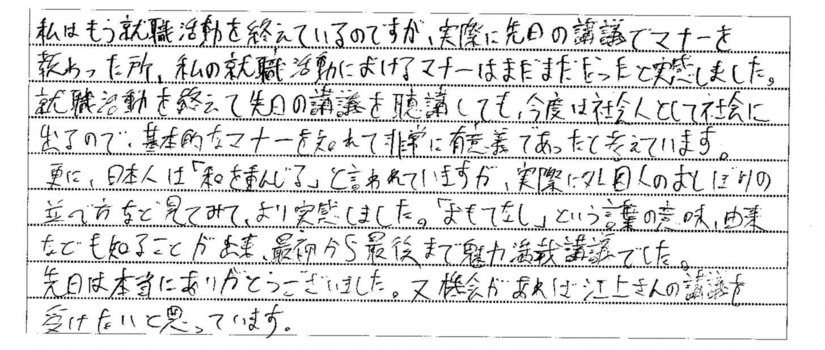 私はもう就職活動を終えているのですが、実際に先日の講議でマナーを
教わった所、私の就職活動におけるマナーはまだまだだったと実感しました。
就職活動を終えて先日の講議を聴講しても、今度は社会人として社会に
出るので、基本的なマナーを知れて非常に有意義であったと考えています。
更に、日本人は「和を重んじる」と言われていますが、実際に外国人のおしぼりの
並べ方など見てみて、より実感しました。「おもてなし」という言葉の意味、由来
なども知ることが出来、最初から最後まで魅力満載講議でした。
先日は本当にありがとうございました。又機会があれば江上さんの講議を
受けたいと思っています。